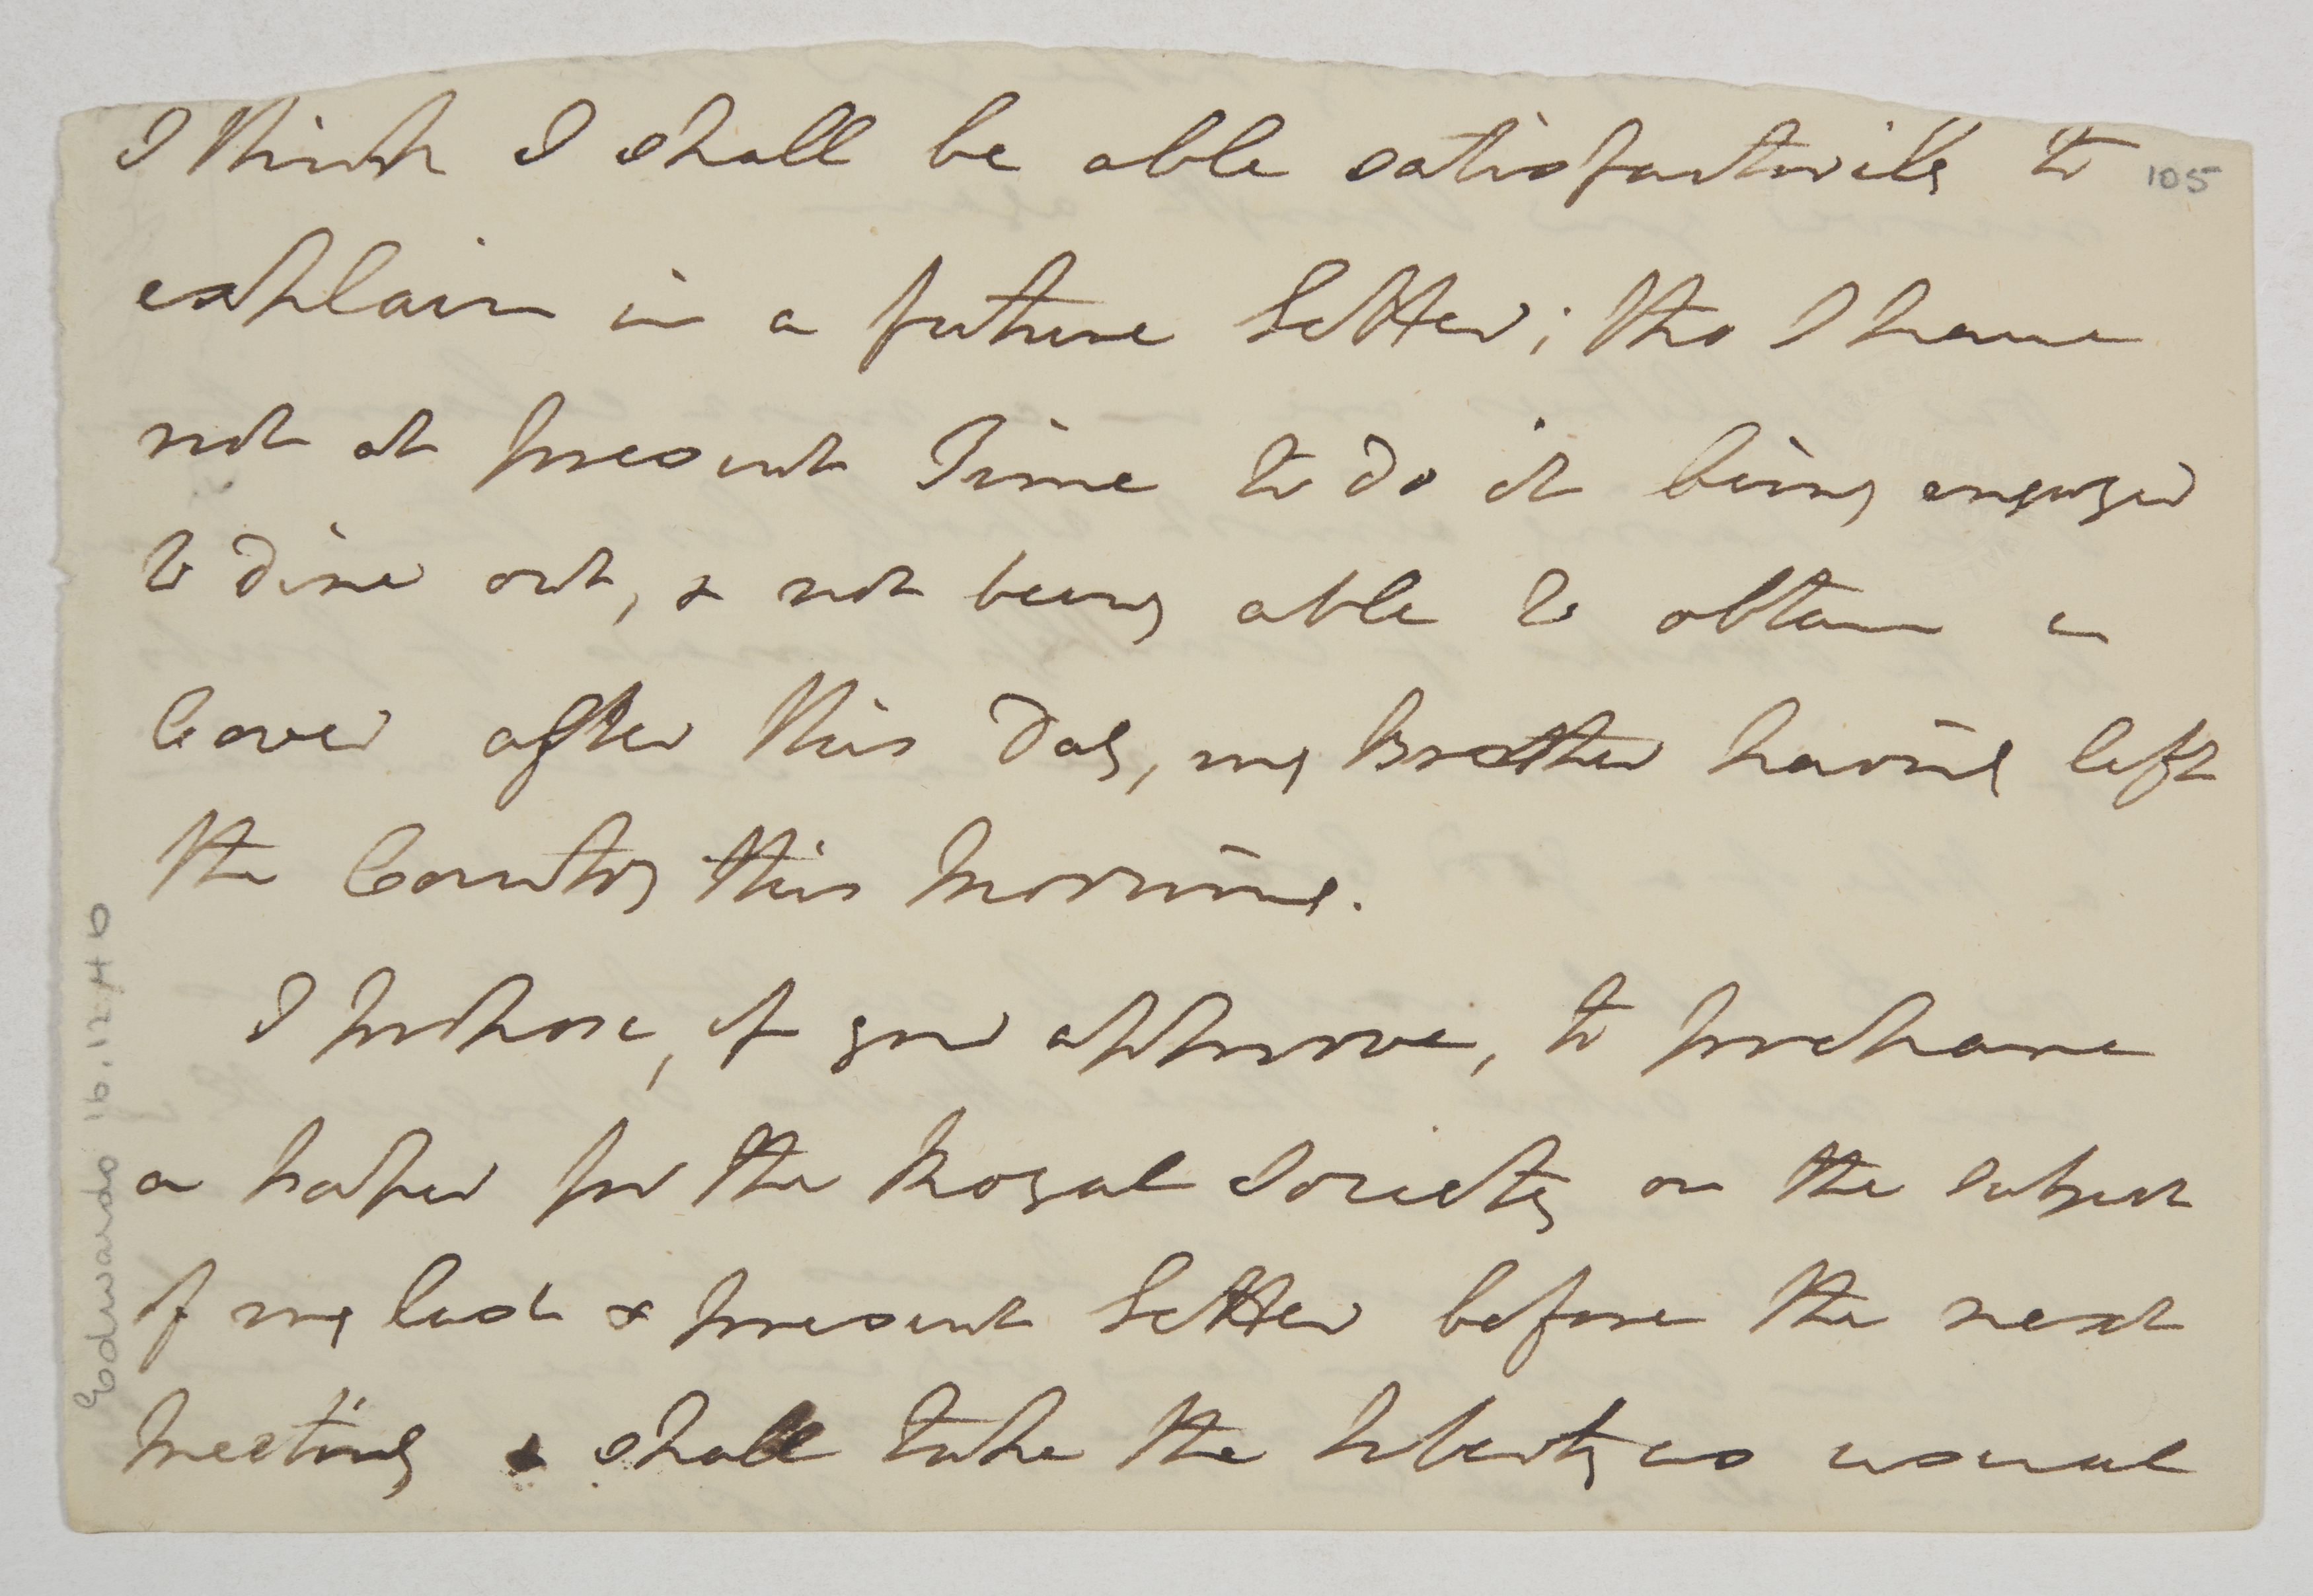 I think I shall be able satisfactorily to
105
explain in a future letter; tho I have
not at present Time to do it being engaged
to dine out, & not being able to obtain a
Cover after this Day, my Brother having left
the Country this morning.
I propose, if you approve, to prepare
a paper for the Royal Society on the subject
of my last & present letter before the next
meeting & shall take the liberty as usual
Edmundo 16.12.46